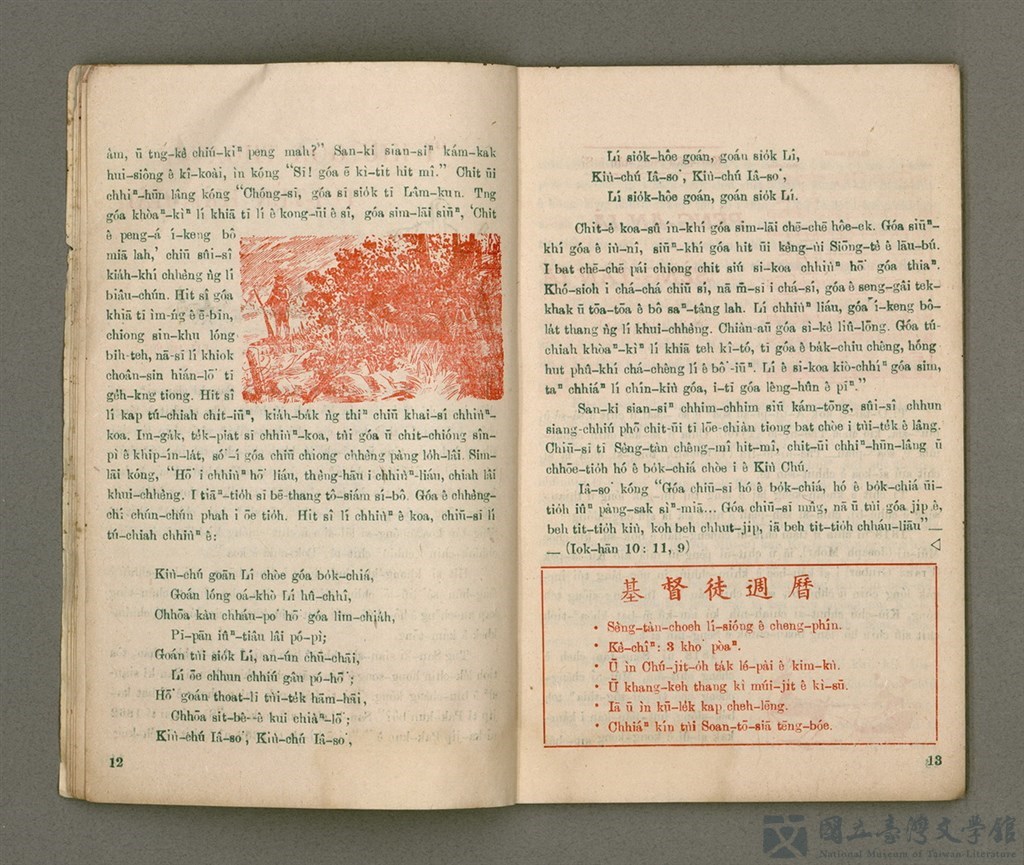 àm, ū tng-kè chiú-kìⁿ peng mah?” San-ki sian-siⁿ kám-kak
hui-siông ê kî-koài, in kóng “Sī! góa ē kì-tit hit mî.” Chit ūi
chhiⁿ-hūn lâng kóng “Chóng-sī, góa sī siòk tī Lâm-kun. Tng
góa khòaⁿ-kìⁿ lí khiā tī lí ê kong-ūi ê sî, góa sim-lāi siūⁿ, ‘Chit
ê peng-á í-keng bô
miā lah,’ chiū sûi-sî
kiáh-khí chhèng ǹg lí
biâu-chún. Hit sî góa
khiā tī ìm-ńg ê ē-bīn,
chiong sin-khu lóng
bih-teh, nā-sī lí khiok
choân-sin hián-lō͘ tī
géh-kng tiong. Hit sî
lí kap tú-chiah chit-iūⁿ, kiáh-bák ǹg thiⁿ chiū khai-sí chhiùⁿ-
koa. Im-gák, ték-piát sī chhiùⁿ-koa, tùi góa ū chit-chióng sîn-
pì ê khip-ín-lát, só͘-í góa chiū chiong chhèng pàng lóh-lâi. Sim-
lāi kóng, “Hō͘ i chhiùⁿ hō͘ liáu, thèng-hāu i chhiùⁿ-liáu, chiah lâi
khui-chhèng. I tiāⁿ-tióh sī bē-thang tô-siám sí-bô. Góa ê chhèng-
chí chún-chún phah i ōe tióh. Hit sî lí chhiùⁿ ê koa, chiū-sī lí
tú-chiah chhiùⁿ ê:
Kiù-chú goān Lí chòe góa bók-chiá,
Goán lóng oá-khò Lí hû-chhî,
Chhōa kàu chhán-po͘ hō͘ góa lim-chiáh,
Pī-pān iûⁿ-tiâu lâi pó-pì;
Goán tùi siòk Lí, an-ún chū-chāi,
Lí ōe chhun chhiú gân pó-hō͘;
Hō͘ goán thoat-lī tùi-ték hām-hāi,
Chhōa sit-bê--ê kui chiàⁿ-lō͘;
Kiù-chú Iâ-so͘, Kiù-chú Iâ-so͘,
12
Lí siòk-hôe goán, goán siòk Lí,
Kiù-chú Iâ-so͘, Kiù-chú Iâ-so͘,
Lí siòk-hôe goán, goán siòk Lí.
Chit-ê koa-sû ín-khí góa sim-lāi chē-chē hôe-ek. Góa siūⁿ-
khí góa ê iù-nî, siūⁿ-khí góa hit ūi kèng-ùi Siōng-tè ê lāu-bú.
I bat chē-chē pái chiong chit siú si-koa chhiùⁿ hō͘ góa thiaⁿ.
Khó-sioh i chá-chá chiū sí, nā m̄-sī i chá-sí, góa ê seng-gâi tek-
khak ū tōa-tōa ê bô saⁿ-tâng lah. Lí chhiùⁿ liáu, góa í-keng bô-
lát thang ǹg lí khui-chhèng. Chiàn-āu góa sì-kè liû-lōng. Góa tú-
chiah khòaⁿ-kìⁿ lí khiā teh kî-tó, tī góa ê bák-chiu chêng, hóng
hut phû-khí chá-chêng lí ê bô͘-iūⁿ. Lí ê si-koa kiò-chhíⁿ góa sim,
taⁿ chhiáⁿ lí chín-kiù góa, i-tī góa lêng-hûn ê pīⁿ.”
San-ki sian-siⁿ chhim-chhim siū kám-tōng, sûi-sî chhun
siang-chhiú phō chit-ūi tī lōe-chiàn tiong bat chòe i tùi-ték ê lâng.
Chiū-sī tī Sèng-tàn chêng-mî hit-mî, chit-ūi chhiⁿ-hūn-lâng ū
chhōe-tióh hó ê bók-chiá chòe i ê Kiù Chú.
Iâ-so͘ kóng “Góa chiū-sī hó ê bók-chiá, hó ê bók-chiá ūi-
tióh iûⁿ pàng-sak sìⁿ-miā... Góa chiū-sī mn̂g, nā ū tùi góa jip ê,
beh tit-tióh kiù, koh beh chhut-jip, iā beh tit-tióh chháu-liāu”__
__ (Iok-hān 10: 11, 9) ◁
基督徒週曆
• Sèng-tàn-choeh lí-siōng ê cheng-phín.
• Kè-chîⁿ: 3 kho͘ pòaⁿ.
• Ū ìn Chú-jit-óh ták lé-pài ê kim-kù.
• Ū khang-keh thang kì múi-jit ê kì-sū.
• Iā ū ìn kū-lék kap cheh-lēng.
Chhiáⁿ kín tùi Soan-tō-siā tēng-bóe.
13
國立臺灣文學館
National Museum of Taiwan Literature